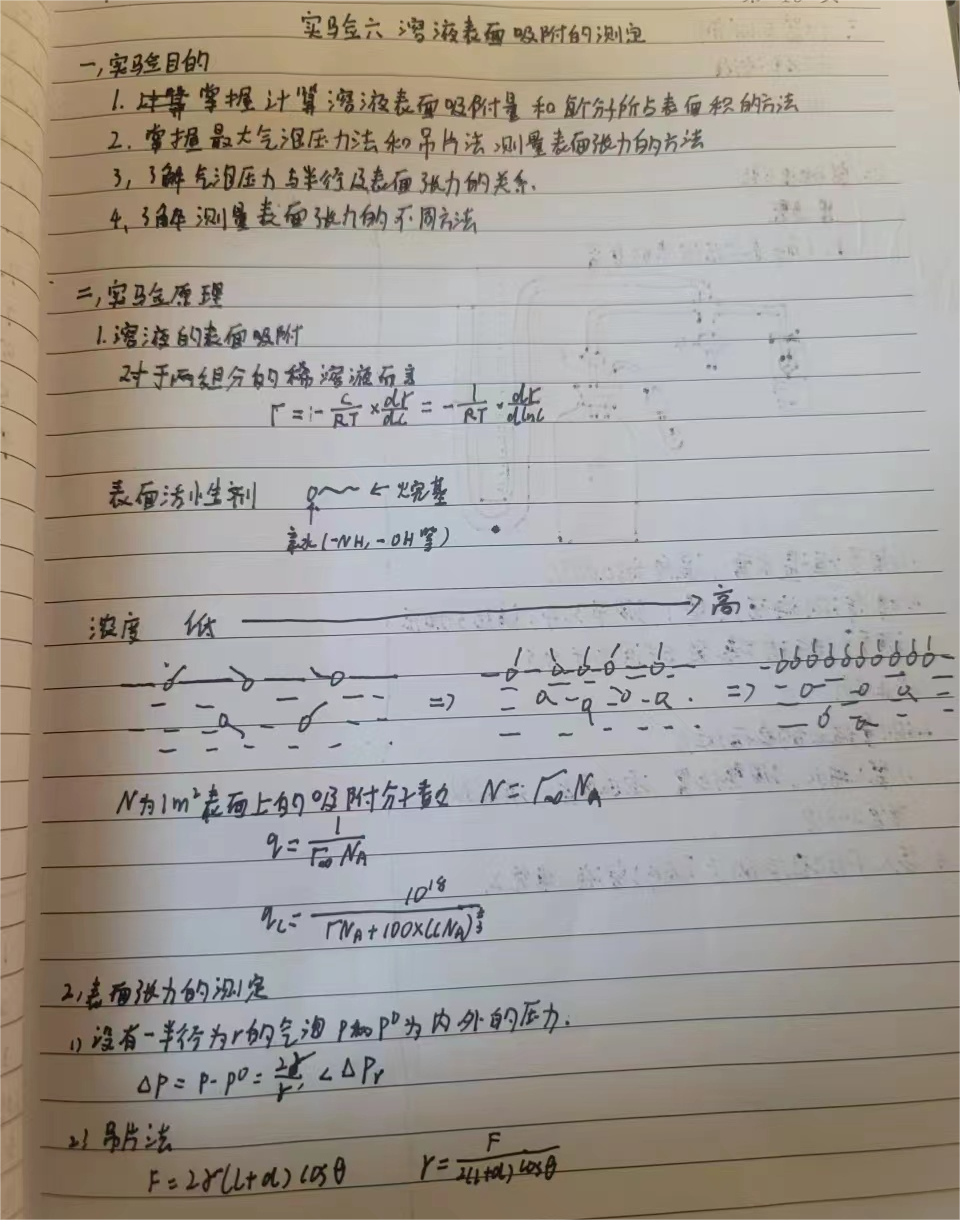 实验六 溶液表面吸附的测定
一、实验目的
1. 掌握计算溶液表面吸附量和每个分子所占表面积的方法
2. 掌握最大气泡压力法和吊片法测量表面张力的方法
3, 了解气泡压力与半径及表面张力的关系.
4, 了解测量表面张力的不同方法
二, 实验原理
1. 溶液的表面吸附
对于两组分的稀溶液而言
Γ = - c/RT × dγ/dc = - 1/RT · dγ/dlnc
表面活性剂 ← 烷基
亲水(-NH, -OH等)
浓度 低 → 高.
⇒ ⇒
N为1m²表面上的吸附分子数 N = Γ∞ NA
q = 1/Γ∞ NA
qc = 10^18/ΓNA+100×(cNA)^2/3
2, 表面张力的测定
1) 设有一半径为r的气泡 P和P⁰为内外的压力.
ΔP = P - P⁰ = 2γ/r < ΔPr
2) 吊片法
F = 2γ(l+d) cosθ γ = F/2(l+d) cosθ